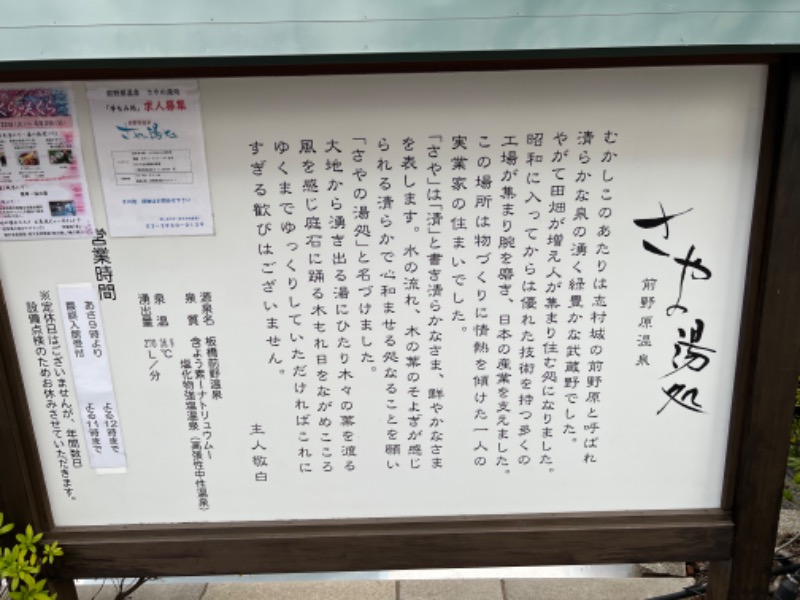 さやの湯処
前野原温泉
むかしこのあたりは志村城の前野原と呼ばれ
清らかな泉の湧く緑豊かな武蔵野でした。
やがて田畑が増え人が集まり住む処になりました。
昭和に入ってからは優れた技術を持つ多くの
工場が集まり腕を磨き、日本の産業を支えました。
この場所は物づくりに情熱を傾けた一人の
実業家の住まいでした。
「さや」は「清」と書き清らかなさま、鮮やかなさま
を表します。水の流れ、木の葉のそよぎが感じ
られる清らかで心和ませる処なることを願い
「さやの湯処」と名づけました。
大地から湧き出る湯にひたり木々の葉を渡る
風を感じ庭石に踊る木もれ日をながめこころ
ゆくまでゆっくりしていただければこれに
すぎる歓びはございません。
主人敬白
源泉名 板橋前野温泉
泉質 含よう素ーナトリュウムー
塩化物強塩温泉(高張性中性温泉)
泉温 ℃
湧出量 L/分
営業時間
あさ9時より よる12時まで
最終入館受付 よる11時まで
※定休日はございませんが、年間数日
設備点検のためお休みさせていただきます。
前野原温泉 さやの湯処
「手もみ処」求人募集
さやの湯処